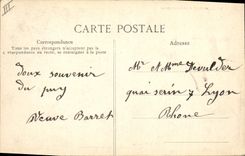 III
CARTE POSTALE
Correspondance
Adresse
Tous les pays étrangers n'acceptent pas la
correspondance au recto, se renseigner à la poste
doux souvenir
du puy
Veuve Barret
Mr & Mme Devulder
quai serin 7 Lyon
Rhone